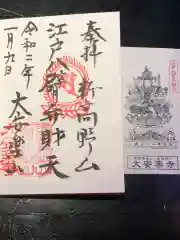 奉拝 新高野山
江戸八臂弁財天
令和二年
一月九日
大安楽寺
大安楽寺